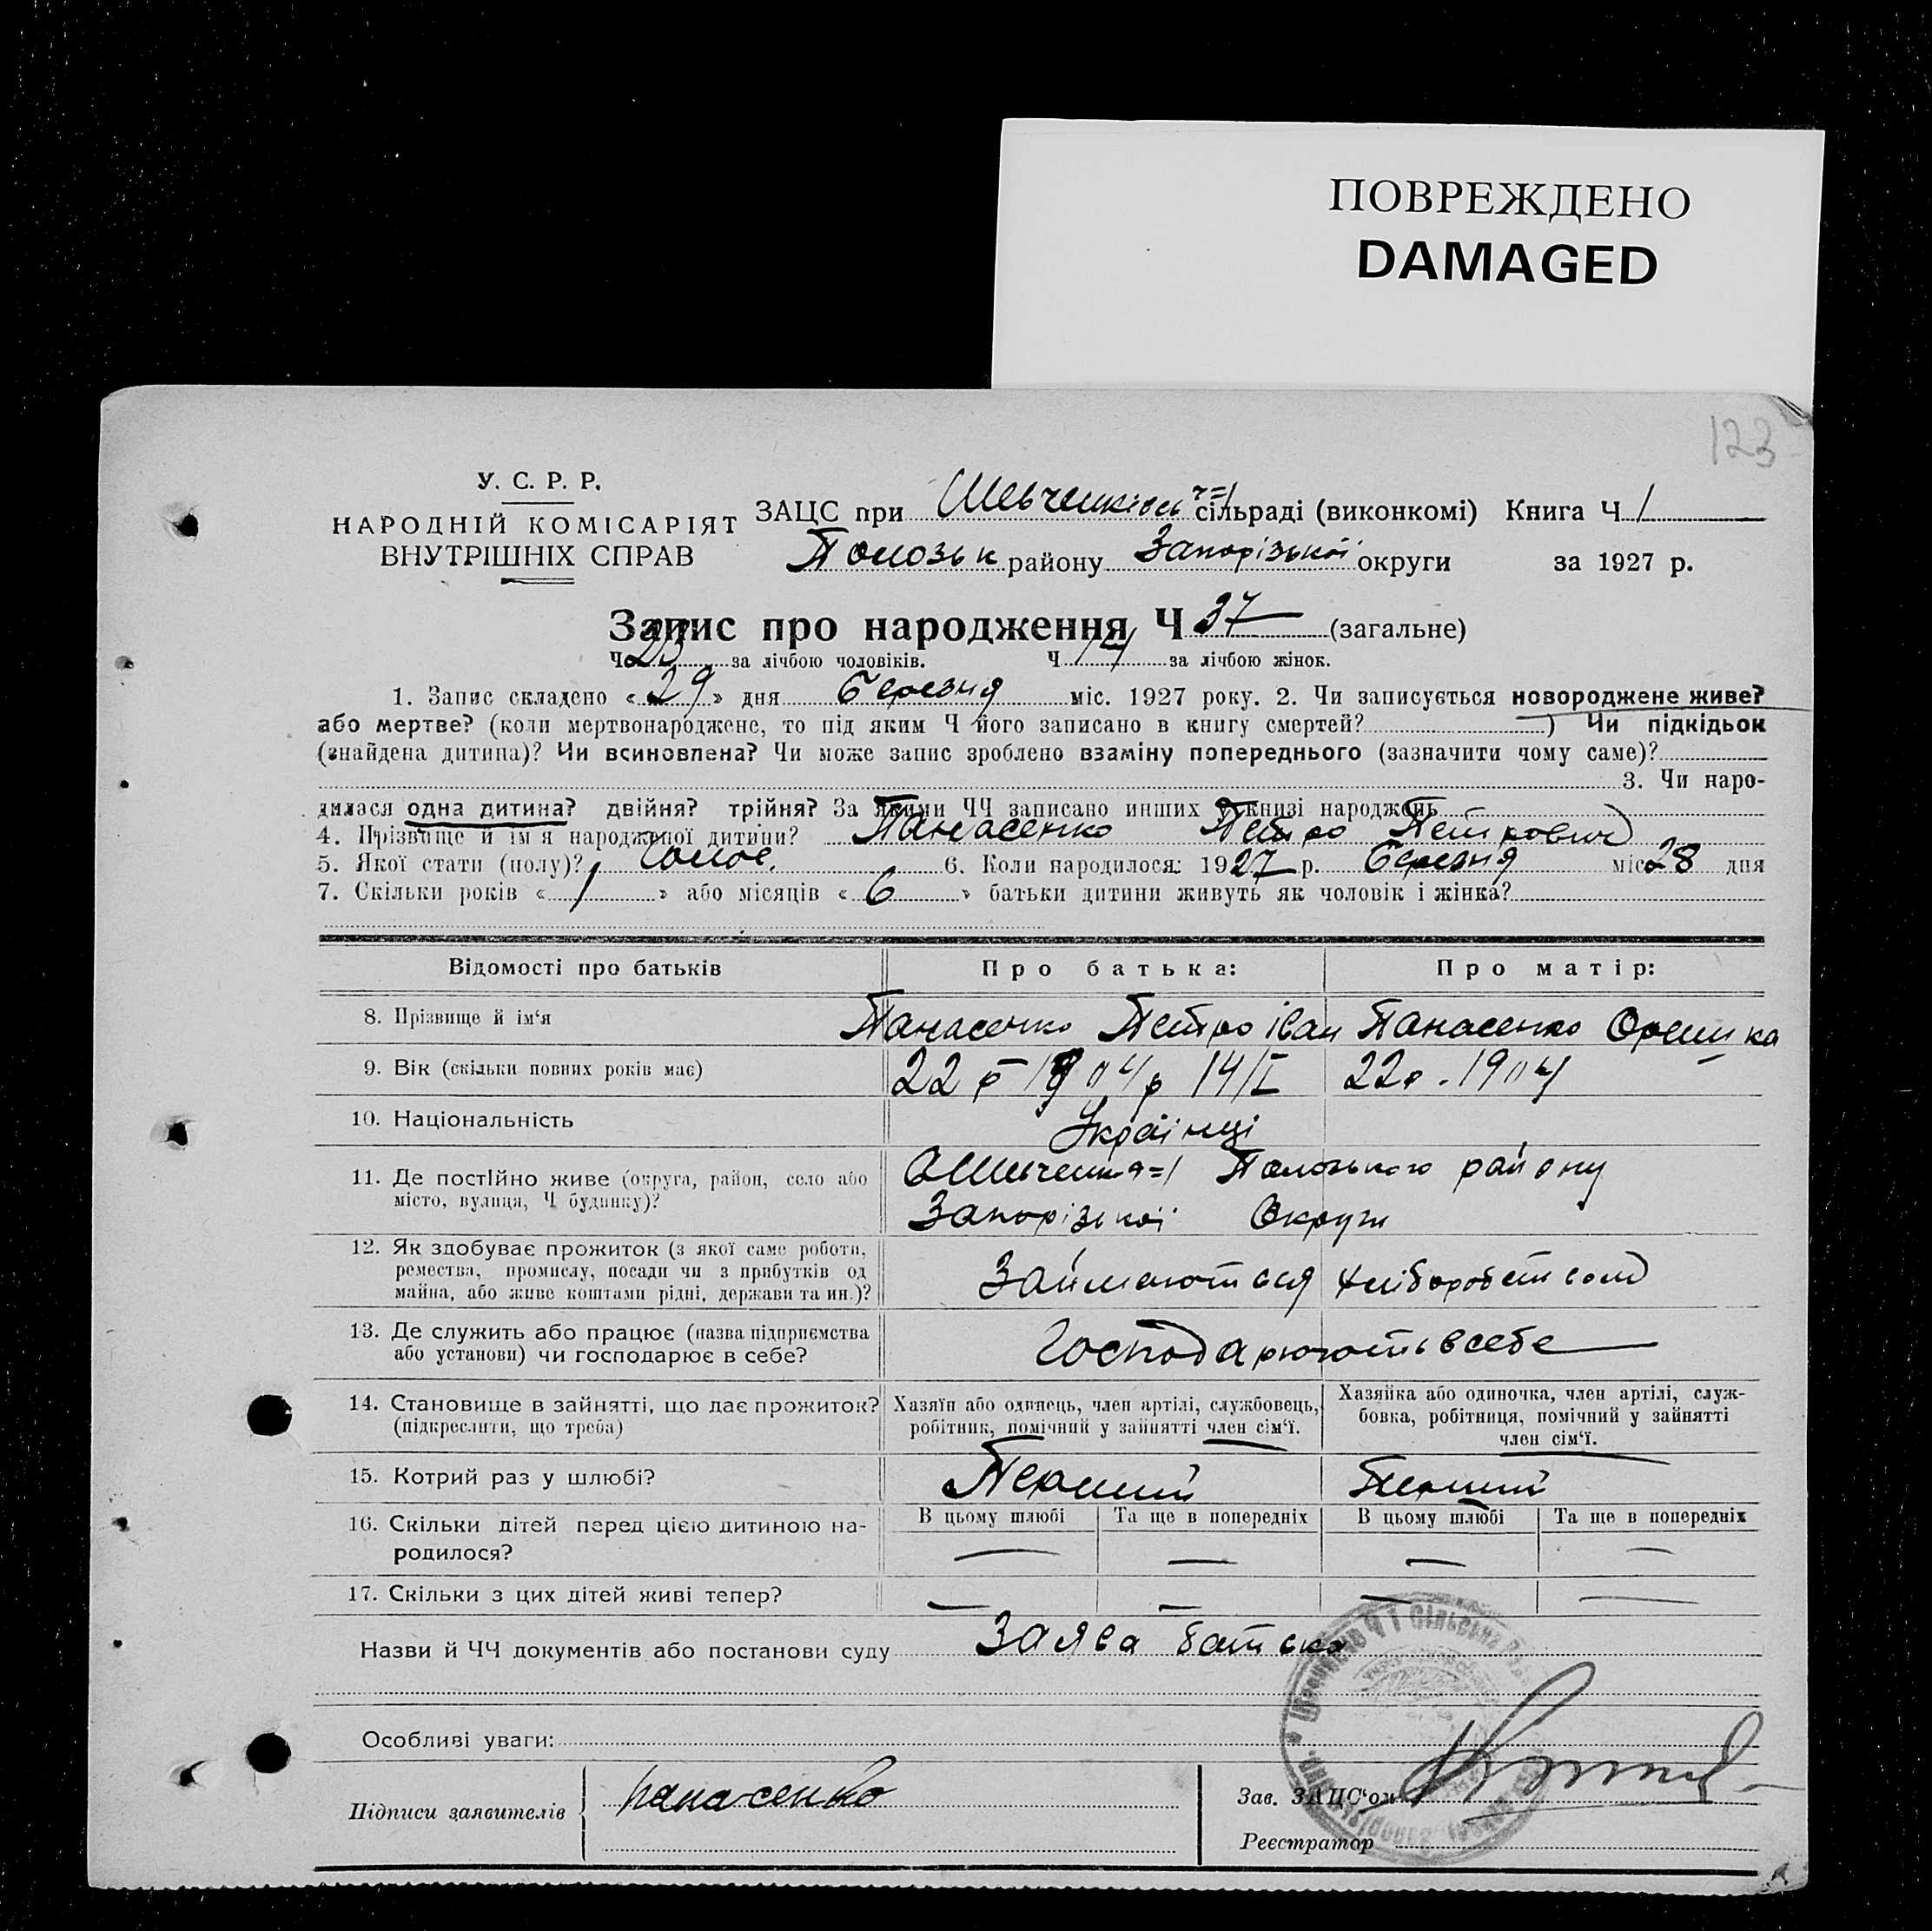 ПОВРЕЖДЕНО
DAMAGED
123
У. С. Р. Р.
НАРОДНІЙ КОМІСАРІЯТ
ВНУТРІШНІХ СПРАВ
ЗАЦС при Шевченківськ ч=1 сільраді (виконкомі) Книга Ч 1
Пологськ району Запорізької округи за 1927 р.
Запис про народження Ч 37 (загальне)
Ч 23 за лічбою чоловіків. Ч 14 за лічбою жінок.
1. Запис складено «29» дня Березня міс. 1927 року. 2. Чи записується новороджене живе?
або мертве? (коли мертвонароджене, то під яким Ч його записано в книгу смертей? ) Чи підкідьок
(знайдена дитина)? Чи всиновлена? Чи може запис зроблено взаміну попереднього (зазначити чому саме)?
3. Чи наро-
дилася одна дитина? двійня? трійня? За якими ЧЧ записано инших у книзі народжень
4. Прізвище й ім'я народженої дитини? Панасенко Петро Петрович
5. Якої стати (полу)? 6. Коли народилося: 1927 р. Березня міс 28 дня
7. Скільки років «1» або місяців «6» батьки дитини живуть як чоловік і жінка?
Відомості про батьків Про батька: Про матір:
8. Прізвище й ім'я Панасенко Петро Іван Панасенко Оришка
9. Вік (скільки повних років має) 22 р 1904 р 14/I 22 р. 1904
10. Національність Українці
11. Де постійно живе (округа, район, село або
місто, вулиця, Ч будинку)?
Пологського району
Запорізької Округи
12. Як здобуває прожиток (з якої саме роботи,
ремества, промислу, посади чи з прибутків од
майна, або живе коштами рідні, держави та ин.)?
Займаються хліборобством
13. Де служить або працює (назва підприємства
або установи) чи господарює в себе?
Господарюють в себе
14. Становище в зайнятті, що дає прожиток?
(підкреслити, що треба)
Хазяїн або одинець, член артілі, службовець,
робітник, помічний у зайнятті член сім'ї.
Хазяйка або одиночка, член артілі, служ-
бовка, робітниця, помічний у зайнятті
член сім'ї.
15. Котрий раз у шлюбі? Перший Перший
16. Скільки дітей перед цією дитиною на-
родилося?
В цьому шлюбі Та ще в попередніх В цьому шлюбі Та ще в попередніх
— — — —
17. Скільки з цих дітей живі тепер? — — — —
Назви й ЧЧ документів або постанови суду Заява батька
Особливі уваги:
Підписи заявителів Панасенко
Зав. ЗАЦС'ом
Реєстратор